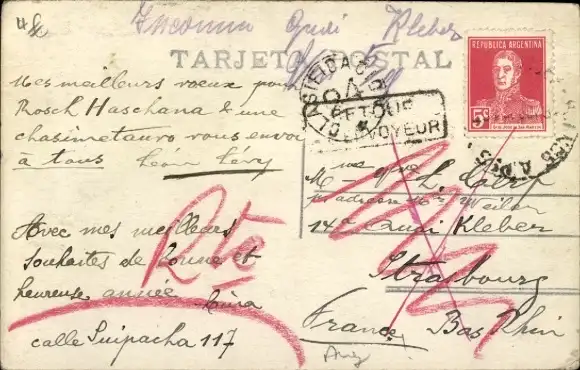 48
Inconnu Quai Kleber
TARJETA POSTAL
REPUBLICA ARGENTINA
5c
RETOUR
ENVOYEUR
Mes meilleurs voeux pour
Rosch Haschana & une
chasimetauro vous envoi
à tous Léon Lévy
Avec mes meilleurs
souhaites de bonne et
heureuse année
calle Suipacha 117
Rte
L. Cerf
Mr Weiler
14 a Quai Kleber
Strasbourg
France. Bas Rhin
Arg